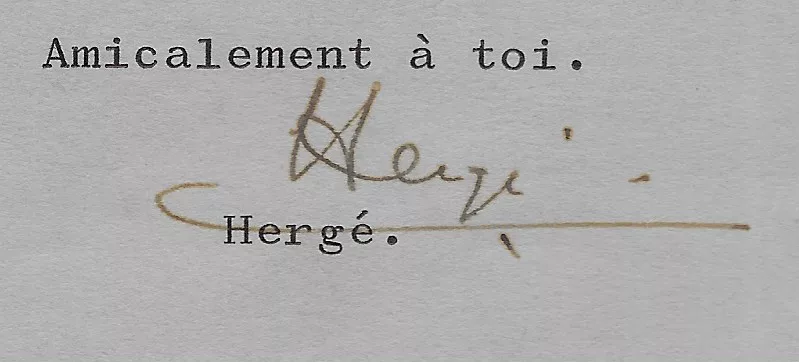 Amicalement à toi.
Hergé
Hergé.